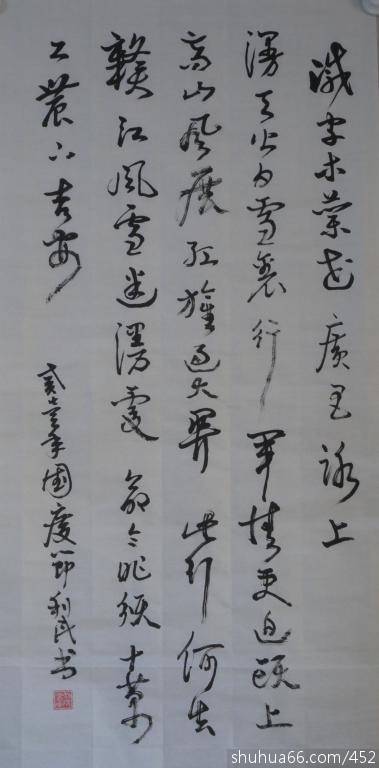 減字木蘭花 廣昌路上
漫天皆白雪裏行軍情更迫頭上
高山風展紅旗過大關 此行何去
贛江風雪迷漫處 命令昨頒十萬
工農下吉安
年國慶節利民书
shuhua66.com/452